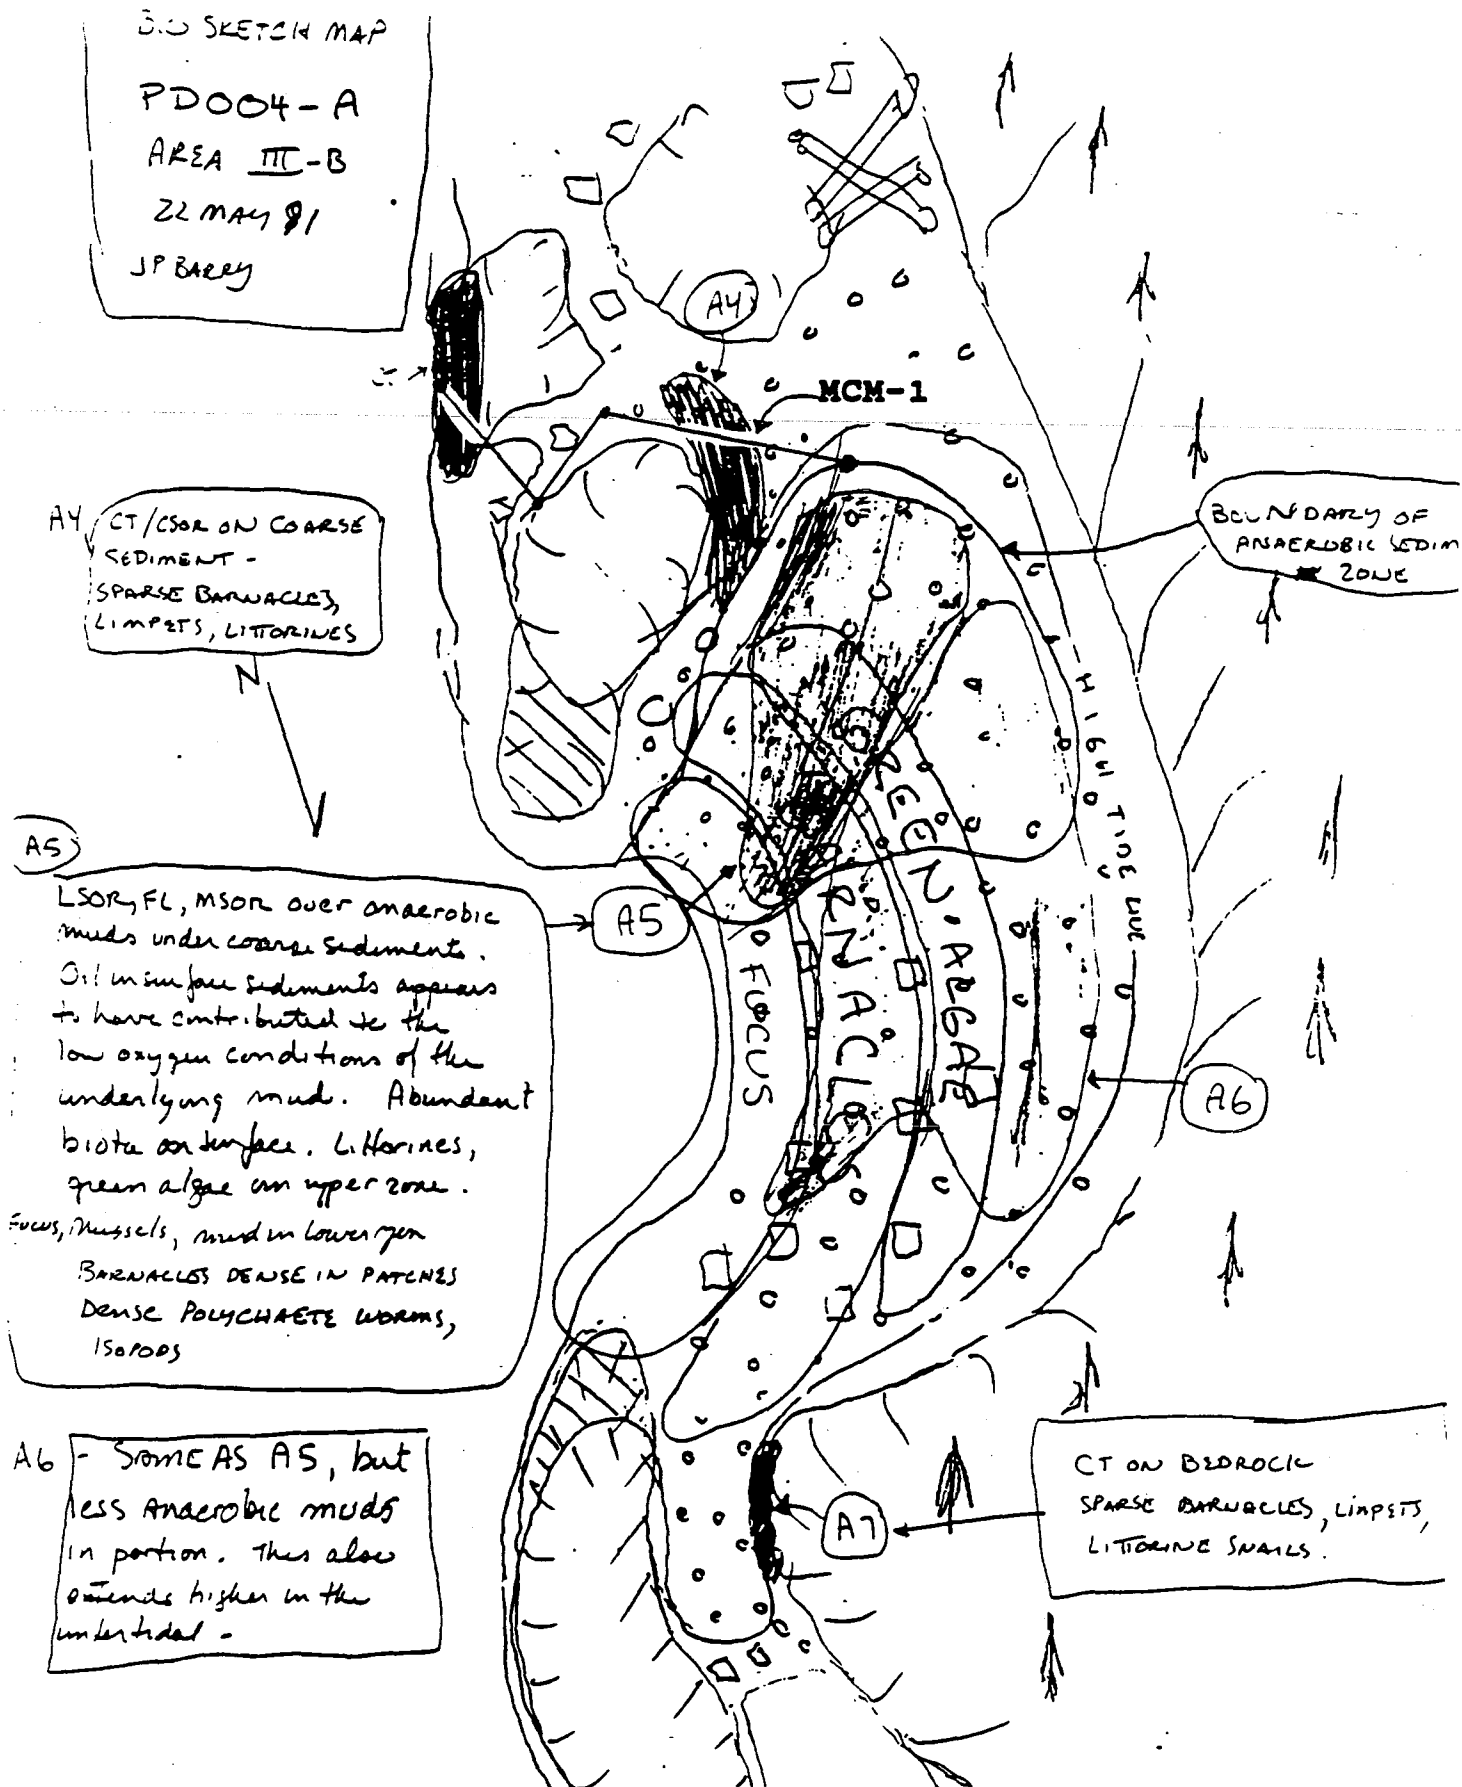 BIO SKETCH MAP
PD004-A
AREA III-B
22 MAY 91
JP BARRY
A4
MCM-1
A4
CT/CSOR ON COARSE
SEDIMENT -
SPARSE BARNACLES,
LIMPETS, LITTORINES
N
BOUNDARY OF
ANAEROBIC SEDIM
ZONE
HIGH TIDE LINE
GREEN ALGAE
BARNACLES
FUCUS
A5
LSOR, FL, MSOR over anaerobic
muds under coarse sediments.
Oil in surface sediments appears
to have contributed to the
low oxygen conditions of the
underlying mud. Abundant
biota on surface. Littorines,
green algae on upper zone.
Fucus, Mussels, mud in lower zon
BARNACLES DENSE IN PATCHES
Dense POLYCHAETE WORMS,
ISOPODS
A5
A6
A6
- SAME AS A5, but
less Anaerobic muds
in portion. This also
extends higher in the
intertidal -
A7
CT ON BEDROCK
SPARSE BARNACLES, LIMPETS,
LITTORINE SNAILS.